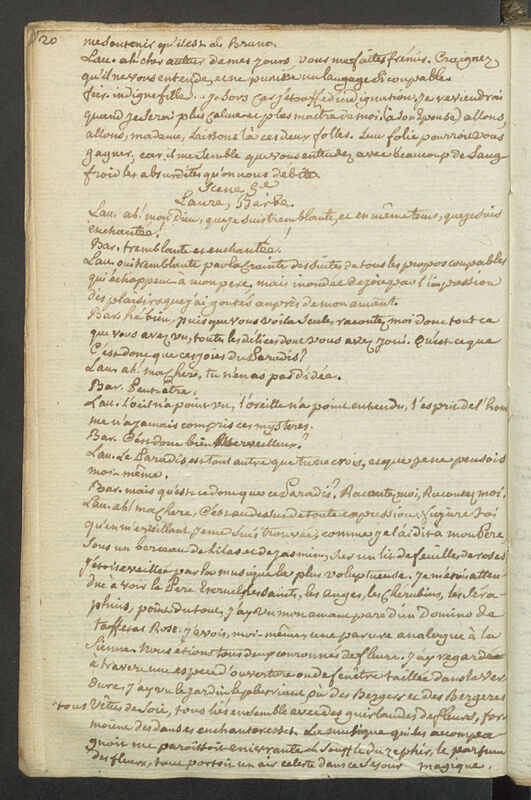 20
me soutenir qu'il est de Bruno.
Lau. ah! cher auteur de mes jours, vous me faites frémir. Craignez
qu'il ne vous entende, et ne punisse un langage si coupable
fier. indigne fille... je sors car j'etouffe d'indignation. Je reviendrai
quand je serai plus calme et plus maitre de moi. (a son epouse) allons,
allons, madame, laissons là ces deux folles. Leur folie pourroit vous
gagner, car il me semble que vous entendez avec beaucoup de sang
froid les absurdités qu'on nous débite.
Scene 3e
Laure, Barbe.
Lau. ah! mon Dieu, que je suis tremblante, et en même tems, que je suis
enchantée!
Bar. tremblante et enchantée!
Lau. oui tremblante par la crainte des suites de tous les propos coupables
qui échappent a mon pere, mais inondée de joie par l'impression
des plaisirs que j'ai goutés auprès de mon amant.
Bar. hé bien, puisque vous voila seule, racontez moi donc tout ce
que vous avez vu, toutes les délices dont vous avez joui. Qu'est ce que
C'est donc que ces joies du Paradis?
Lau. ah! ma chere, tu n'en as pas d'idée.
Bar. Peut-être.
Lau. l'oeil n'a point vu, l'oreille n'a point entendu, l'esprit de l'hom
me n'a jamais compris ces mysteres.
Bar. C'est donc bien merveilleux?
Lau. Le Paradis est tout autre que tu ne crois, et que je ne pensois
moi-même.
Bar. mais qu'est ce donc que ce Paradis? Racontez moi, Racontez moi.
Lau. ah! ma chere, C'est au dessus de toute expression. figure toi
qu'en m'éveillant je me suis trouvée, comme je l'ai dit a mon Pere
sous un berceau de lilas et de jasmin, sur un lit de feuilles de roses
j'etois eveillée par la musique la plus voluptueuse. Je m'etois atten-
due à voir le Pere Eternel, les saints, les anges, les Chérubins, les Séra-
phins, point du tout, j'ay vu mon amant paré d'un Domino de
taffetas Rose. j'avois, moi-même, une parure analogue à la
sienne. Nous etions tous deux couronnés de fleurs. J'ay regardé
à travers une espece d'ouverture ou de fenêtre taillée dans la ver
dure, j'ay vu le jardin le plus riant où des Bergers et des Bergeres
tous vetus de soie, tous liés ensemble avec des guirlandes de fleurs, for-
moient des danses enchanteresses. La musique qui les accompa
gnoit me paroissoit enivrante. Le souffle du zephir, le parfum
des fleurs, tout portoit un air celeste dans ce sejour magique.